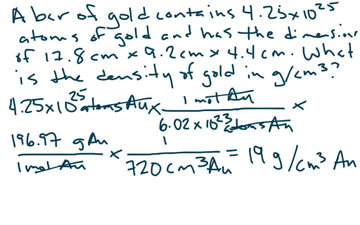 A bar of gold contains 4.25x10²⁵
atoms of gold and has the dimension
of 17.8 cm x 9.2cm x 4.4 cm. What
is the density of gold in g/cm³?
4.25x10²⁵ atoms Au x 1 mol Au / 6.02 x 10²³ atoms Au x
196.97 g Au / 1 mol Au x 1 / 720 cm³ Au = 19 g/cm³ Au